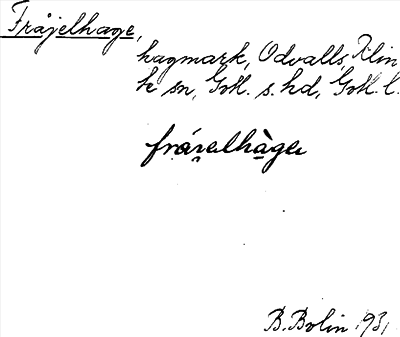 Fråjelhage,
hagmark, Odvalls, Klin
te sn, Gotl. s. hd, Gotl. l.
fráʒelhàge
B. Bolin 1931